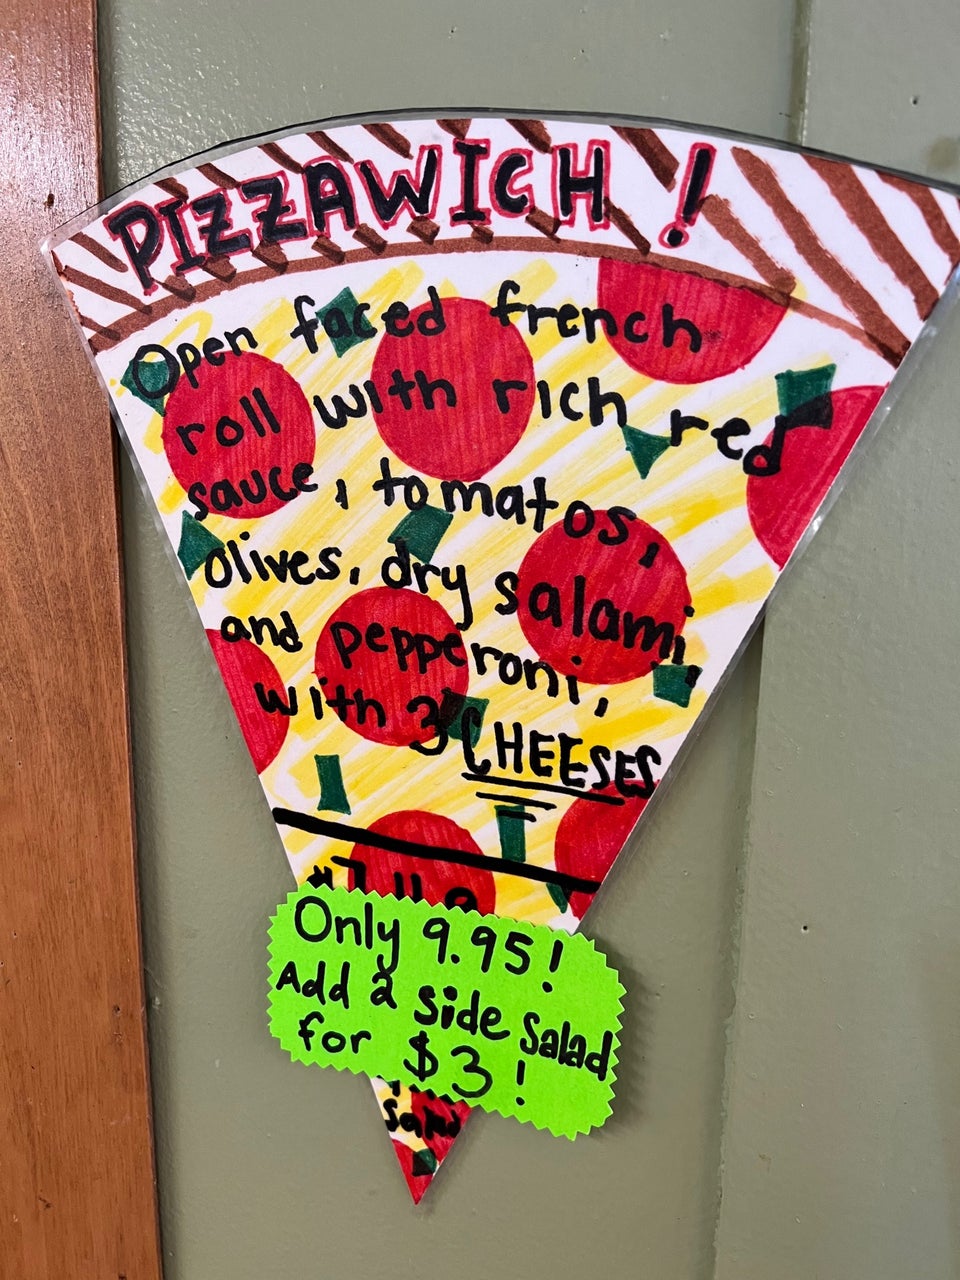 PIZZAWICH !
Open faced french
roll with rich red
sauce, tomatos,
olives, dry salami,
and pepperoni,
with 3 CHEESES
Only 9.95!
Add a side Salad
for $3!